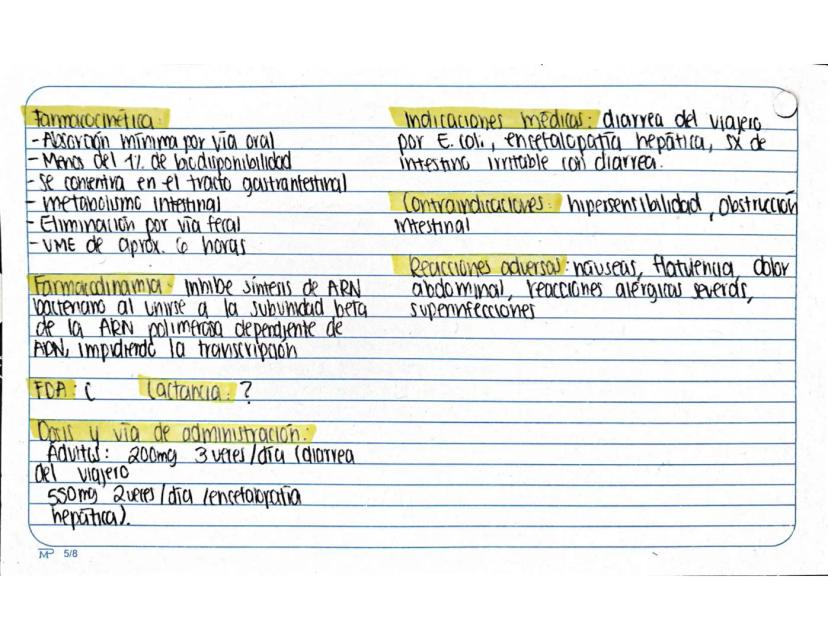 Farmacocinética:
- Absorción mínima por vía oral
- Menos del 1% de biodisponibilidad
- Se concentra en el tracto gastrointestinal
- metabolismo intestinal
- Eliminación por vía fecal
- VME de aprox. 6 horas
Farmacodinamia: Inhibe síntesis de ARN
bacteriano al unirse a la subunidad beta
de la ARN polimerasa dependiente de
ADN, impidiendo la transcripción
FDA: C Lactancia: ?
Dosis y vía de administración:
Adultos: 200mg 3 veces/día (diarrea
del viajero
550mg 2 veces/día (encefalopatía
hepática).
Indicaciones médicas: diarrea del viajero
por E. coli, encefalopatía hepática, sx de
intestino irritable con diarrea.
Contraindicaciones: hipersensibilidad, obstrucción
intestinal
Reacciones adversas: náuseas, flatulencia, dolor
abdominal, reacciones alérgicas severas,
superinfecciones
MP 5/8